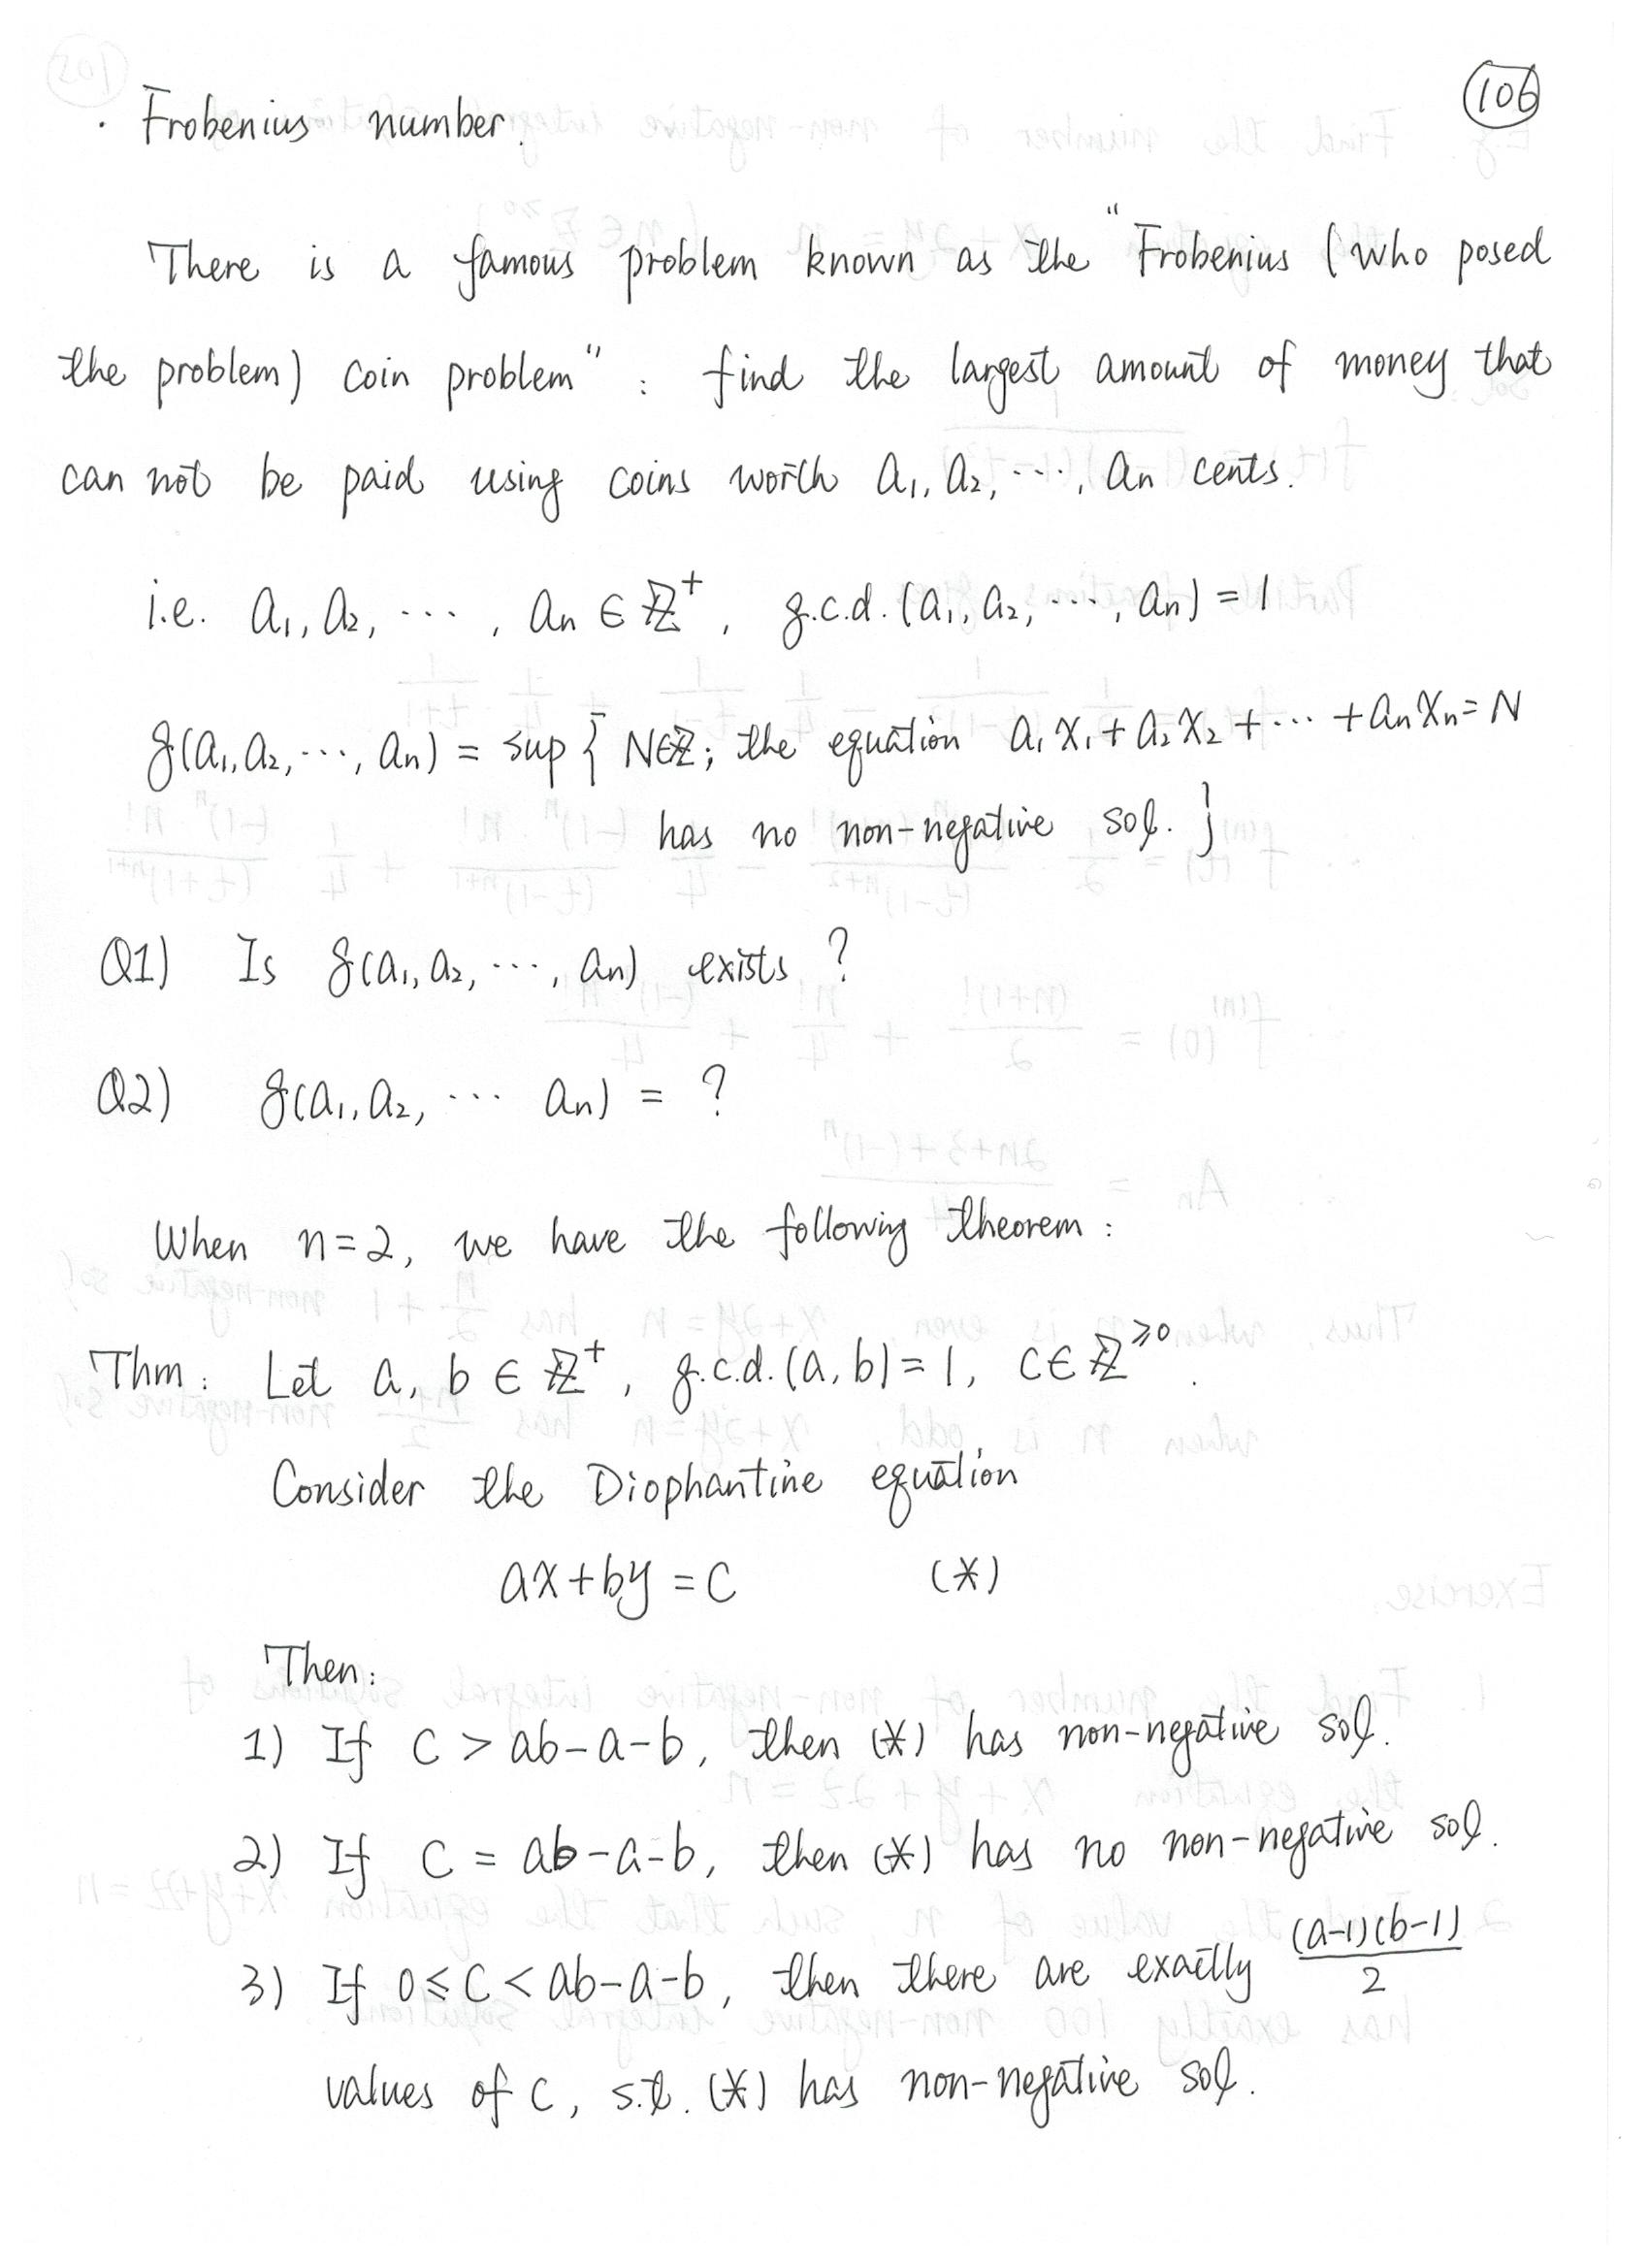 106
· Frobenius number.
There is a famous problem known as the "Frobenius (who posed
the problem) coin problem" : find the largest amount of money that
can not be paid using coins worth a₁, a₂, ⋯, aₙ cents.
i.e. a₁, a₂, ⋯, aₙ ∈ ℤ⁺, g.c.d. (a₁, a₂, ⋯, aₙ) = 1
g(a₁, a₂, ⋯, aₙ) = sup { N∈ℤ; the equation a₁x₁ + a₂x₂ + ⋯ + aₙxₙ = N
has no non-negative sol. }
Q1) Is g(a₁, a₂, ⋯, aₙ) exists ?
Q2) g(a₁, a₂, ⋯ aₙ) = ?
When n=2, we have the following theorem :
Thm : Let a, b ∈ ℤ⁺, g.c.d. (a, b) = 1, c ∈ ℤ^≥0.
Consider the Diophantine equation
ax + by = c (*)
Then :
1) If c > ab-a-b, then (*) has non-negative sol.
2) If c = ab-a-b, then (*) has no non-negative sol.
3) If 0 ≤ c < ab-a-b, then there are exactly (a-1)(b-1)/2
values of c, s.t. (*) has non-negative sol.